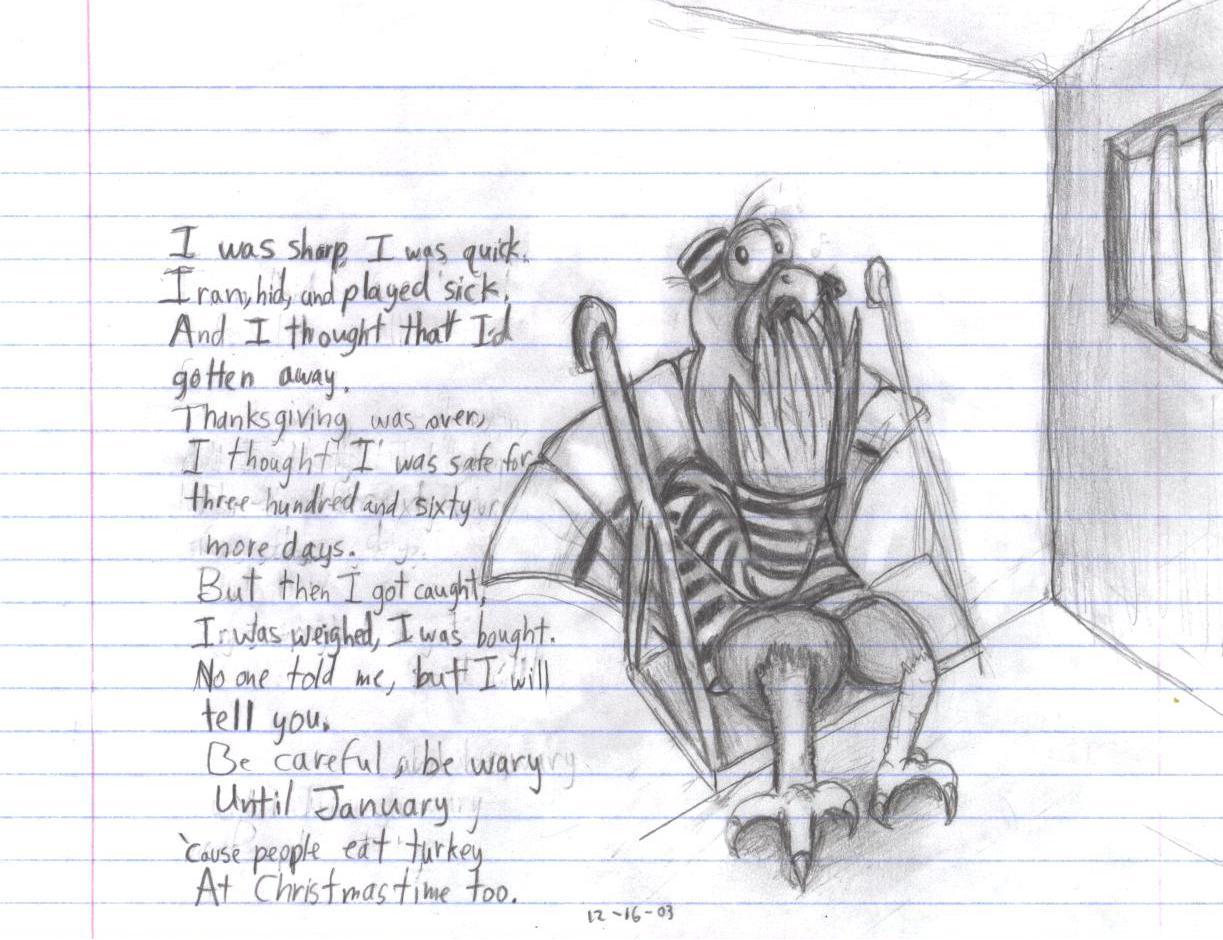 I was sharp, I was quick.
I ran, hid, and played sick.
And I thought that I'd
gotten away.
Thanksgiving was over,
I thought I was safe for
three hundred and sixty
more days.
But then I got caught,
I was weighed, I was bought.
No one told me, but I will
tell you.
Be careful, be wary
Until January
'cause people eat turkey
At Christmastime too.
12-16-03